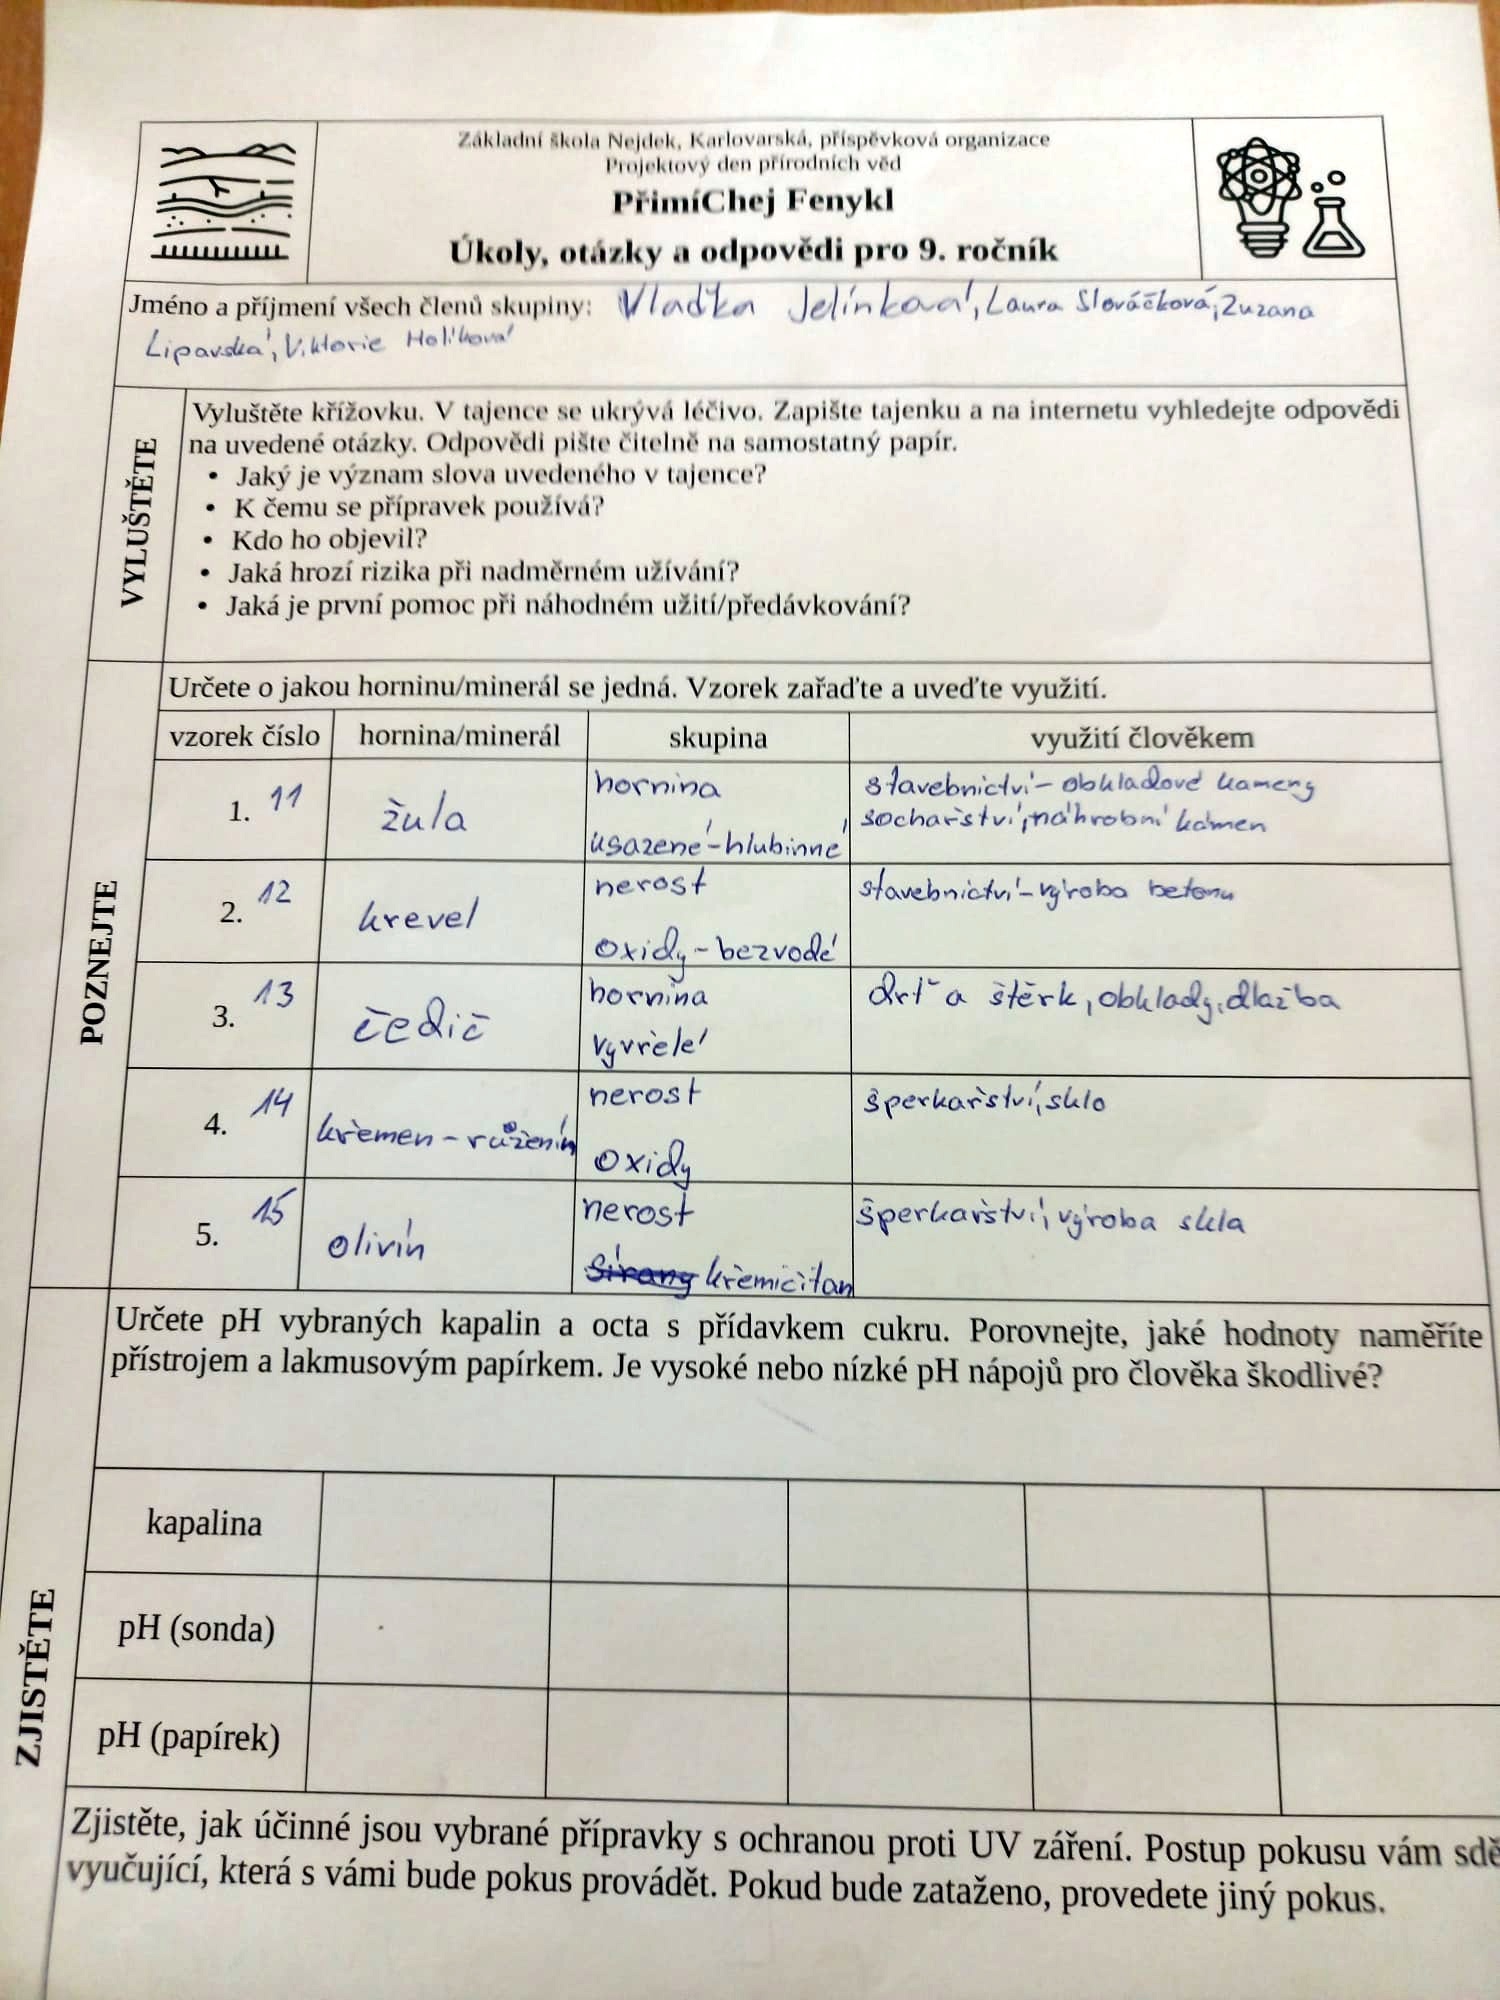 Základní škola Nejdek, Karlovarská, příspěvková organizace
Projektový den přírodních věd
PřimíChej Fenykl
Úkoly, otázky a odpovědi pro 9. ročník
Jméno a příjmení všech členů skupiny: Vlaďka Jelínková, Laura Slováčková, Zuzana
Lipavská, Viktorie Holíková
VYLUŠTĚTE
Vyluštěte křížovku. V tajence se ukrývá léčivo. Zapište tajenku a na internetu vyhledejte odpovědi
na uvedené otázky. Odpovědi pište čitelně na samostatný papír.
• Jaký je význam slova uvedeného v tajence?
• K čemu se přípravek používá?
• Kdo ho objevil?
• Jaká hrozí rizika při nadměrném užívání?
• Jaká je první pomoc při náhodném užití/předávkování?
POZNEJTE
Určete o jakou horninu/minerál se jedná. Vzorek zařaďte a uveďte využití.
vzorek číslo hornina/minerál skupina využití člověkem
1. 11 žula hornina stavebnictví - obkladové kameny
usazené - hlubinné sochařství, náhrobní kámen
2. 12 krevel nerost stavebnictví - výroba betonu
oxidy - bezvodé
3. 13 čedič hornina drť a štěrk, obklady, dlažba
vyvřelé
4. 14 křemen - růženín nerost šperkařství, sklo
oxidy
5. 15 olivín nerost šperkařství, výroba skla
křemičitan
ZJISTĚTE
Určete pH vybraných kapalin a octa s přídavkem cukru. Porovnejte, jaké hodnoty naměříte
přístrojem a lakmusovým papírkem. Je vysoké nebo nízké pH nápojů pro člověka škodlivé?
kapalina
pH (sonda)
pH (papírek)
Zjistěte, jak účinné jsou vybrané přípravky s ochranou proti UV záření. Postup pokusu vám sdě
vyučující, která s vámi bude pokus provádět. Pokud bude zataženo, provedete jiný pokus.